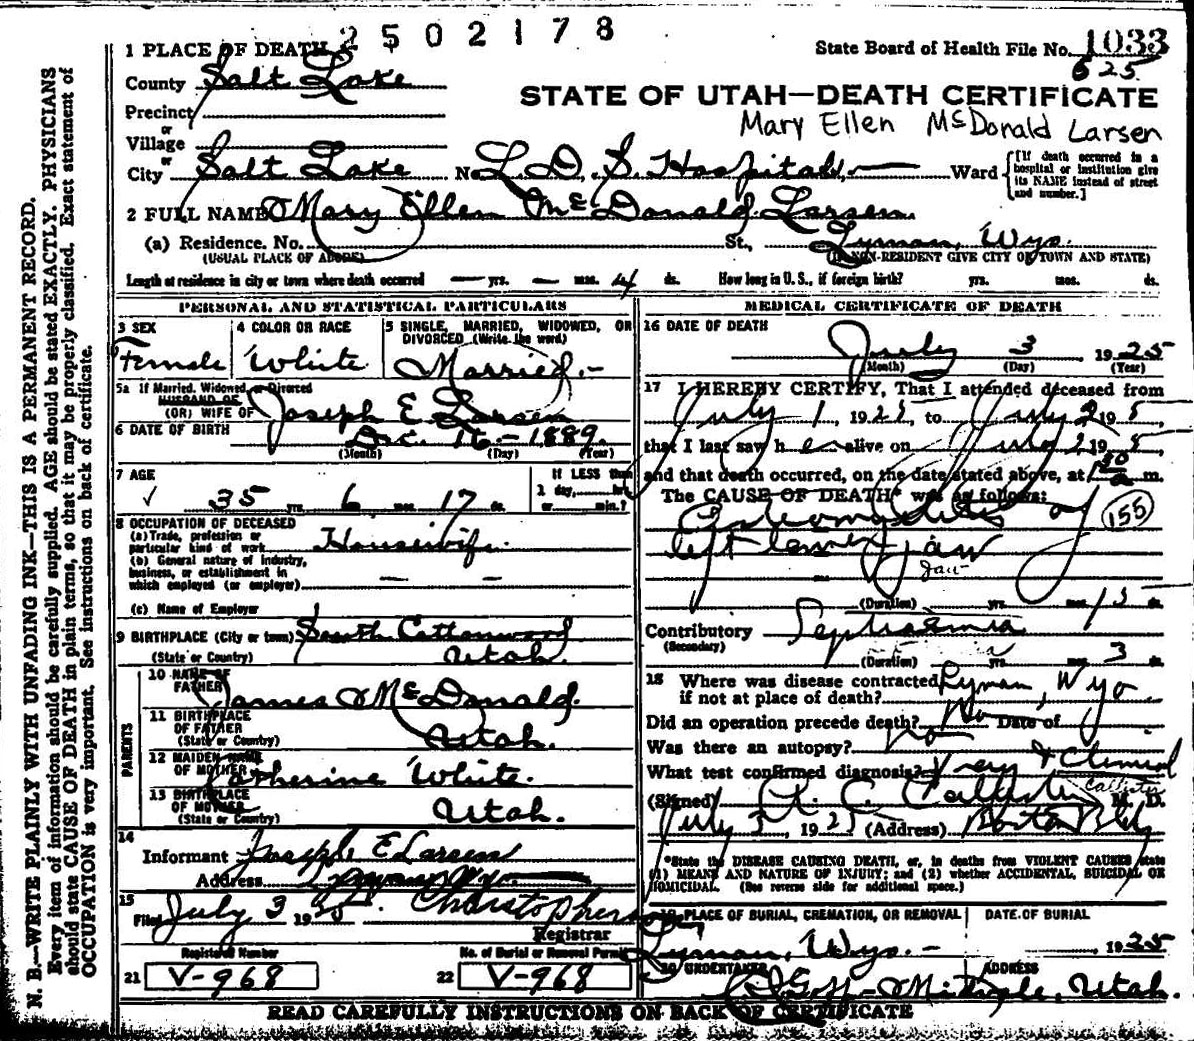 2502178
1 PLACE OF DEATH
State Board of Health File No. 1033
625
County Salt Lake
STATE OF UTAH—DEATH CERTIFICATE
Precinct
Mary Ellen McDonald Larsen
or
Village
or
City Salt Lake No. L. D. S. Hospital, — Ward
[If death occurred in a hospital or institution give its NAME instead of street and number.]
2 FULL NAME Mary Ellen McDonald Larsen.
(a) Residence. No. St., Lyman, Wyo.
(USUAL PLACE OF ABODE) (IF NON-RESIDENT GIVE CITY OR TOWN AND STATE)
Length of residence in city or town where death occurred — yrs. — mos. 4 ds. How long in U. S., if foreign birth? yrs. mos. ds.
PERSONAL AND STATISTICAL PARTICULARS
3 SEX
Female
4 COLOR OR RACE
White
5 SINGLE, MARRIED, WIDOWED, OR
DIVORCED (Write the word)
Married.-
5a If Married, Widowed or Divorced
HUSBAND OF
(OR) WIFE OF Joseph E Larsen
6 DATE OF BIRTH Dec. 16 - 1889.
(Month) (Day) (Year)
7 AGE
35 yrs. 6 mos. 17 ds.
If LESS than
1 day, hrs.
or min.?
8 OCCUPATION OF DECEASED
(a) Trade, profession or
particular kind of work Housewife.
(b) General nature of industry,
business, or establishment in
which employed (or employer) — —
(c) Name of Employer
9 BIRTHPLACE (City or town) South Cottonwood
(State or Country) Utah.
PARENTS
10 NAME OF
FATHER James McDonald.
11 BIRTHPLACE
OF FATHER
(State or Country) Utah.
12 MAIDEN NAME
OF MOTHER Catherine White.
13 BIRTHPLACE
OF MOTHER
(State or Country) Utah.
14
Informant Joseph E Larsen
Address Lyman Wyo.
15
Filed July 3 1925. Christopherson
Registrar
Registered Number
No. of Burial or Removal Permit
21 V-968
22 V-968
MEDICAL CERTIFICATE OF DEATH
16 DATE OF DEATH
July 3, 1925
(Month) (Day) (Year)
17 I HEREBY CERTIFY, That I attended deceased from
July 1, 1925, to July 2 195
that I last saw her alive on July 2 195
and that death occurred, on the date stated above, at 1 50 a m.
The CAUSE OF DEATH* was as follows:
Osteomyelitis of
155
left lower jaw
jaw
(Duration) yrs. mos. 15 ds.
Contributory Septicaemia
(Secondary)
(Duration) yrs. mos. 3 ds.
18 Where was disease contracted
if not at place of death? Lyman, Wyo
Did an operation precede death? No Date of
Was there an autopsy? no
What test confirmed diagnosis? Xray & Clinical
(Signed) A. C. Callister M. D.
Callister
July 3, 1925 (Address) Boston Bldg
*State the DISEASE CAUSING DEATH, or, in deaths from VIOLENT CAUSES state
(1) MEANS AND NATURE OF INJURY; and (2) whether ACCIDENTAL, SUICIDAL OR
HOMICIDAL. (See reverse side for additional space.)
19 PLACE OF BURIAL, CREMATION, OR REMOVAL
DATE OF BURIAL
Lyman, Wyo. -
1925
20 UNDERTAKER
ADDRESS
Goff - Midvale, Utah.
READ CAREFULLY INSTRUCTIONS ON BACK OF CERTIFICATE
N. B.—WRITE PLAINLY WITH UNFADING INK—THIS IS A PERMANENT RECORD.
Every item of information should be carefully supplied. AGE should be stated EXACTLY. PHYSICIANS
should state CAUSE OF DEATH in plain terms, so that it may be properly classified. Exact statement of
OCCUPATION is very important. See instructions on back of certificate.